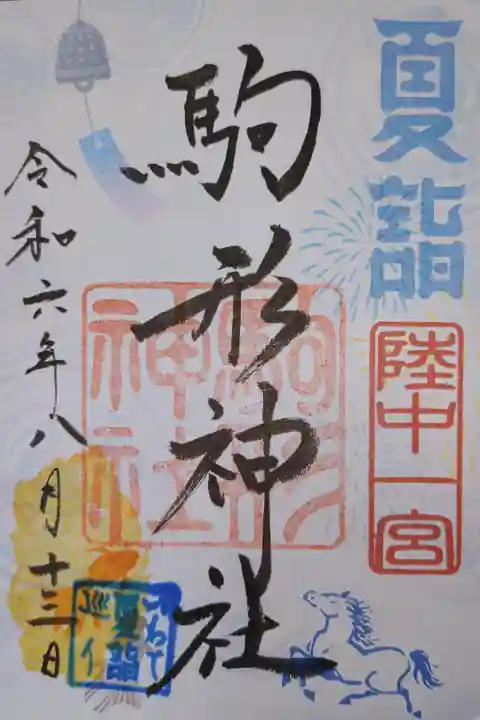 夏詣
陸中一宮
駒形神社
駒形
神社
令和六年八月十三日
いわて
夏詣
巡り